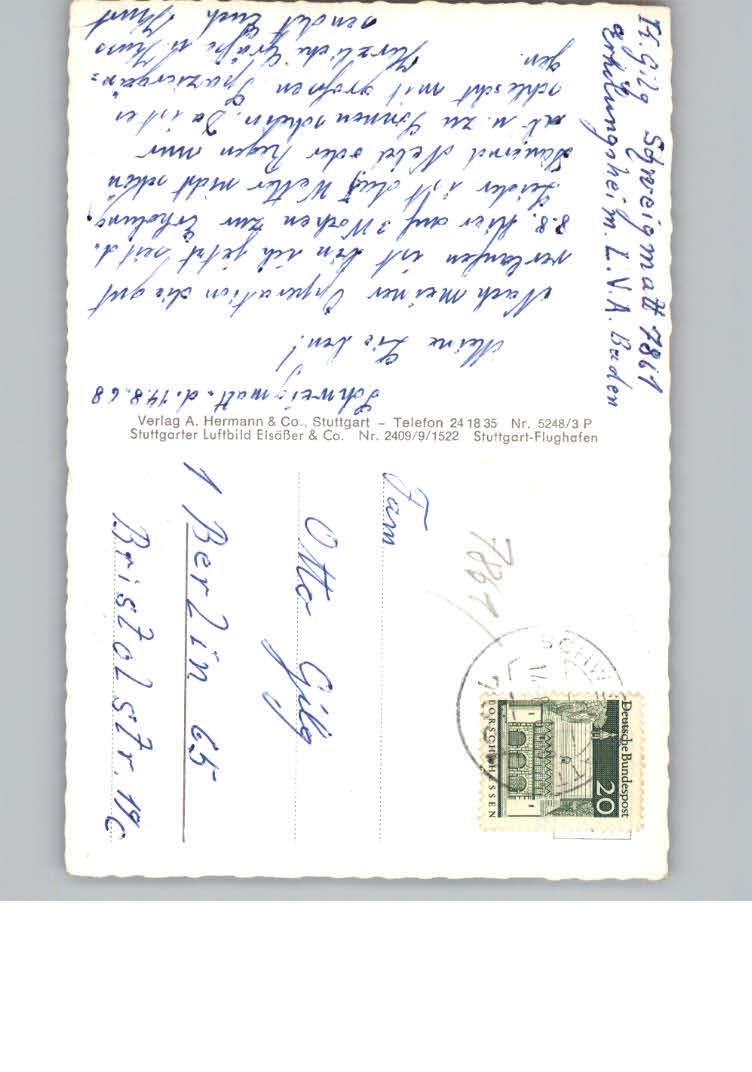 Th. Gilg Schweigmatt 7861
Erholungsheim. L.V.A. Baden
Schweigmatt. d. 14.8.68
Meine Lieben!
Nach meiner Opperation die gut
verlaufen ist bin ich jetzt seit d.
8.8. hier auf 3 Wochen zur Erholung.
Leider ist das Wetter nicht schön
dauernd Nebel oder Regen nur
ab u. zu Sonnenschein. Da ist es
schlecht mit großen Spaziergän=
gen. Herzliche Grüße u. Kuss
sendet Euch
Verlag A. Hermann & Co., Stuttgart – Telefon 24 18 35 Nr. 5248/3 P
Stuttgarter Luftbild Elsäßer & Co. Nr. 2409/9/1522 Stuttgart-Flughafen
Fam
Otto Gilg
1 Berlin 65
Bristolstr. 19c
7861
Deutsche Bundespost
20
LORSCH/HESSEN
SCHW